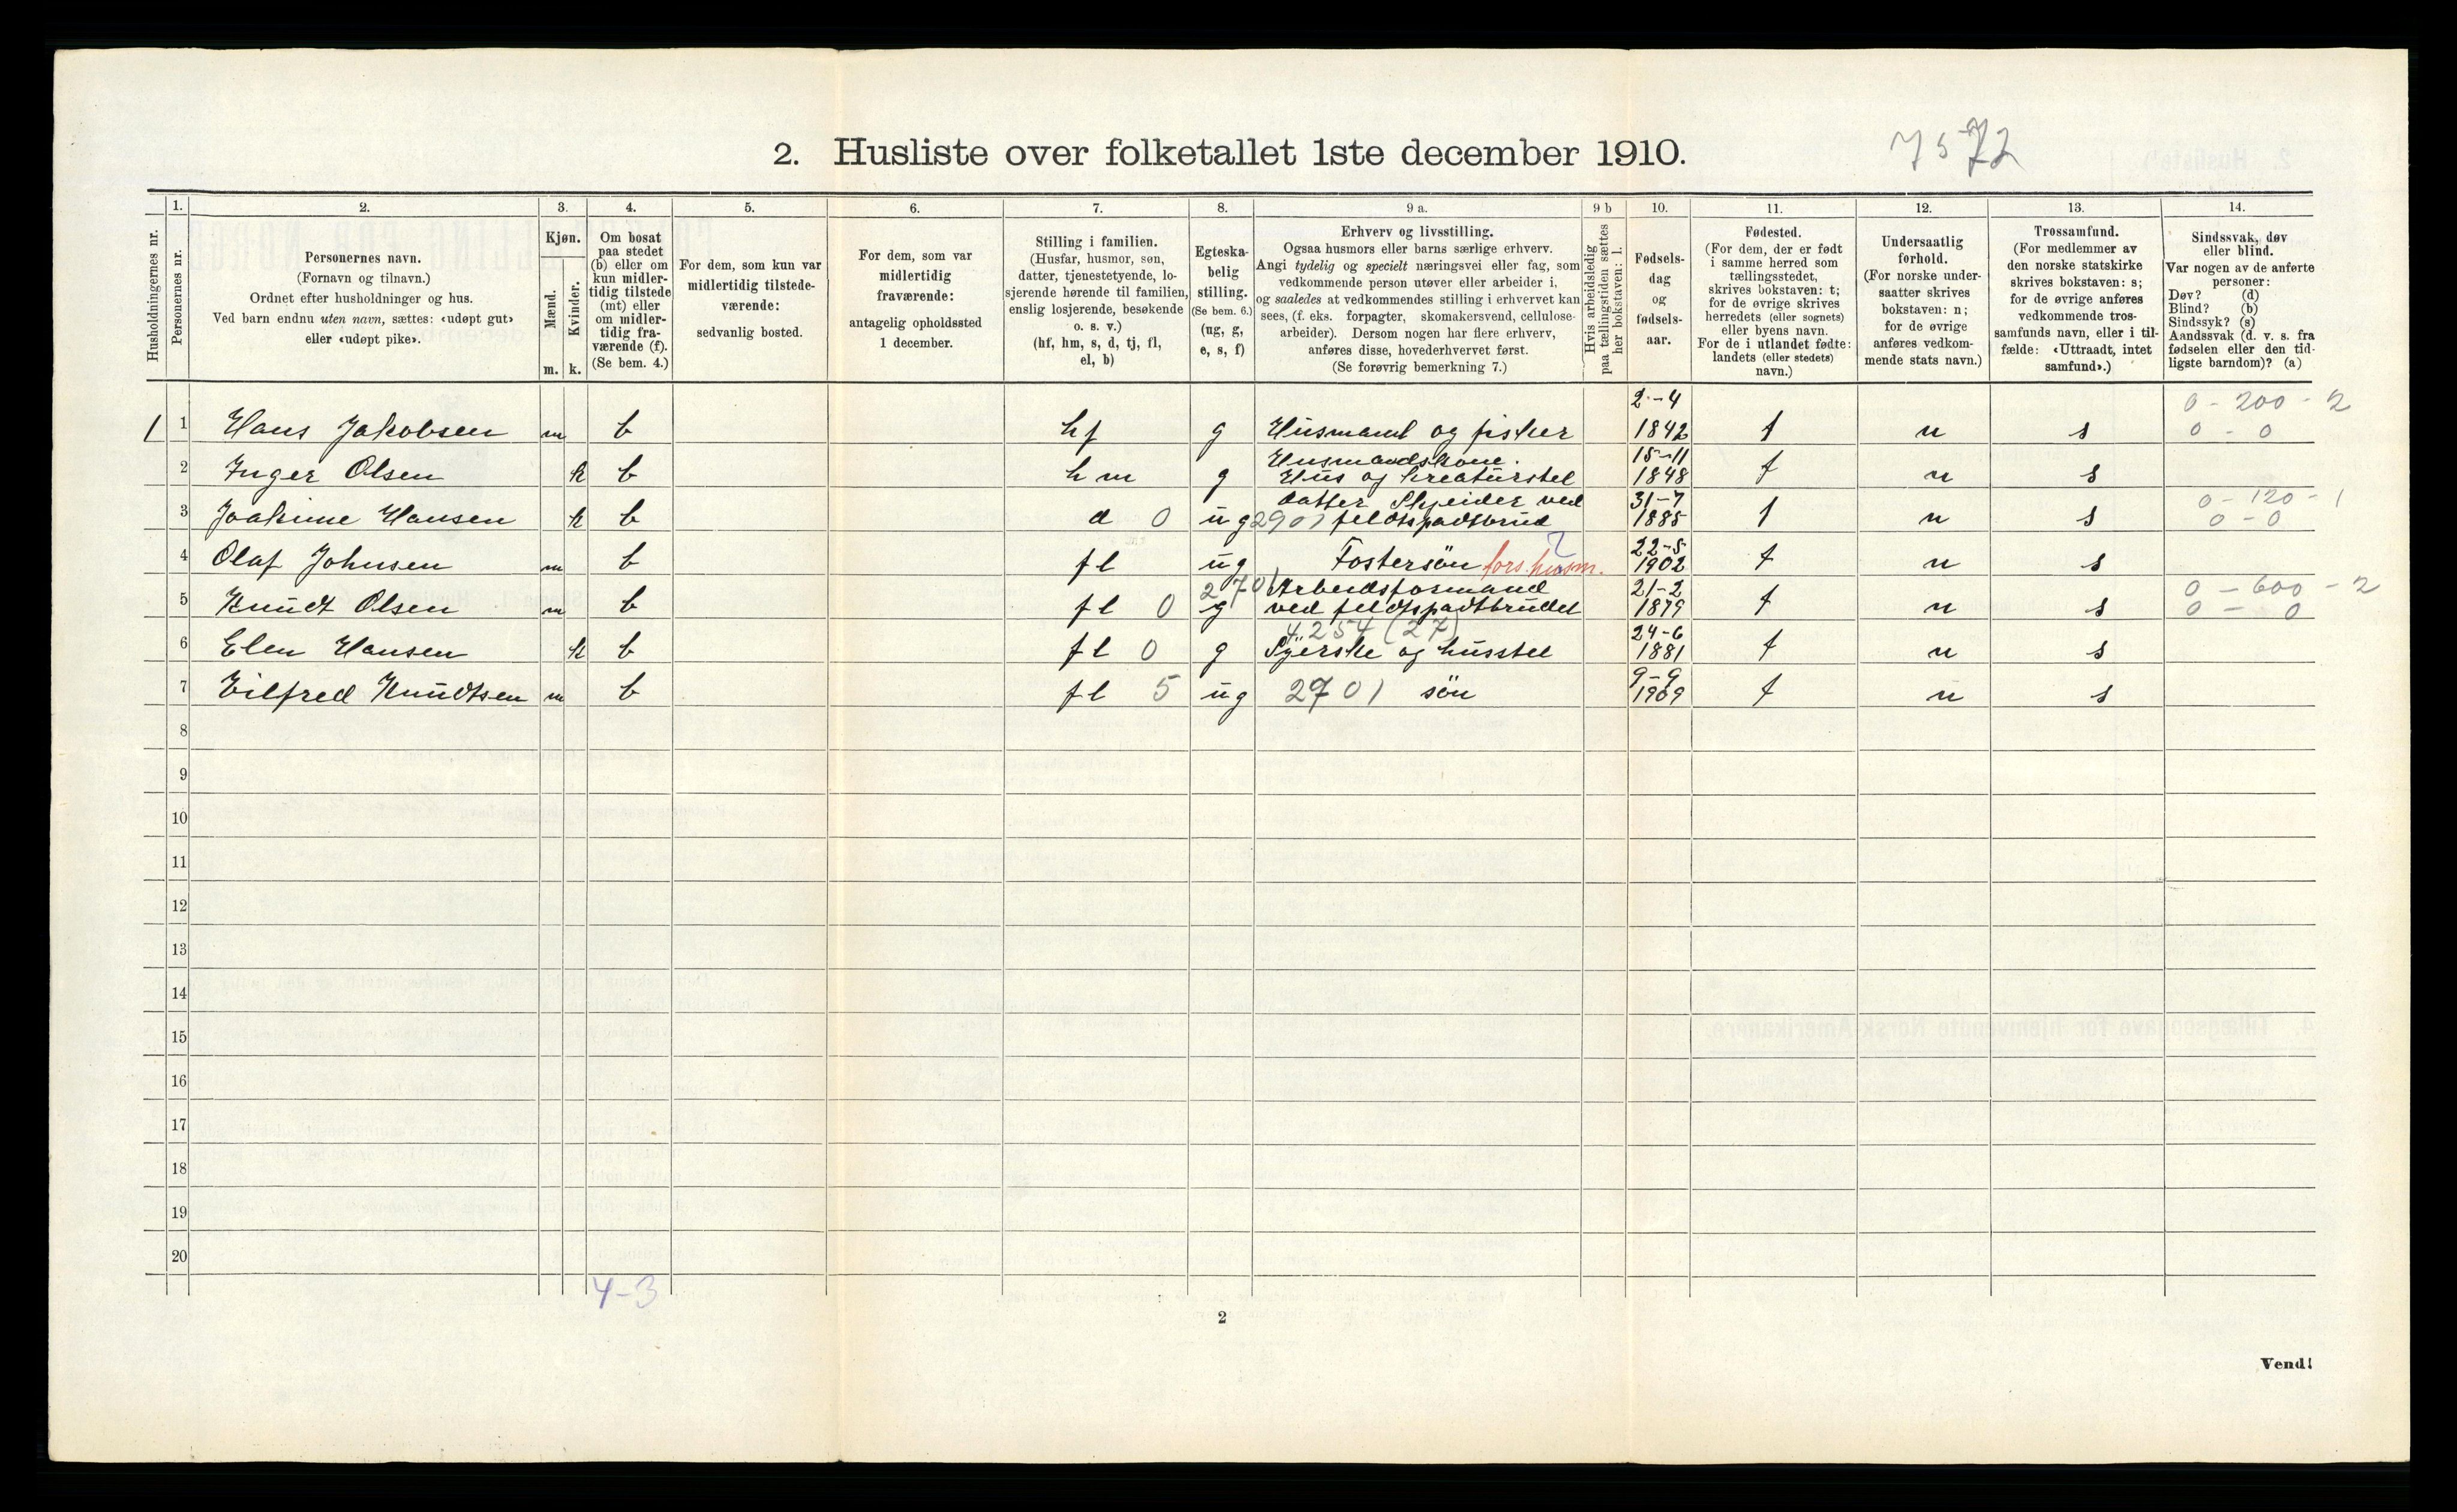 2. Husliste over folketallet 1ste december 1910.
7572
Husholdningernes nr.
1.
Personernes nr.
2.
Personernes navn.
(Fornavn og tilnavn.)
Ordnet efter husholdninger og hus.
Ved barn endnu uten navn, sættes: «udøpt gut»
eller «udøpt pike».
3.
Kjøn.
Mænd.
Kvinder.
m. k.
4.
Om bosat
paa stedet
(b) eller om
kun midler-
tidig tilstede
(mt) eller
om midler-
tidig fra-
værende (f).
(Se bem. 4.)
5.
For dem, som kun var
midlertidig tilstede-
værende:
sedvanlig bosted.
6.
For dem, som var
midlertidig
fraværende:
antagelig opholdssted
1 december.
7.
Stilling i familien.
(Husfar, husmor, søn,
datter, tjenestetyende, lo-
sjerende hørende til familien,
enslig losjerende, besøkende
o. s. v.)
(hf, hm, s, d, tj, fl,
el, b)
8.
Egteska-
belig
stilling.
(Se bem. 6.)
(ug, g,
e, s, f)
9 a.
Erhverv og livsstilling.
Ogsaa husmors eller barns særlige erhverv.
Angi tydelig og specielt næringsvei eller fag, som
vedkommende person utøver eller arbeider i,
og saaledes at vedkommendes stilling i erhvervet kan
sees, (f. eks. forpagter, skomakersvend, cellulose-
arbeider). Dersom nogen har flere erhverv,
anføres disse, hovederhvervet først.
(Se forøvrig bemerkning 7.)
9 b
Hvis arbeidsledig
paa tællingstiden sættes
her bokstaven: l.
10.
Fødsels-
dag
og
fødsels-
aar.
11.
Fødested.
(For dem, der er født
i samme herred som
tællingsstedet,
skrives bokstaven: t;
for de øvrige skrives
herredets (eller sognets)
eller byens navn.
For de i utlandet fødte:
landets (eller stedets)
navn.)
12.
Undersaatlig
forhold.
(For norske under-
saatter skrives
bokstaven: n;
for de øvrige
anføres vedkom-
mende stats navn.)
13.
Trossamfund.
(For medlemmer av
den norske statskirke
skrives bokstaven: s;
for de øvrige anføres
vedkommende tros-
samfunds navn, eller i til-
fælde: «Uttraadt, intet
samfund».)
14.
Sindssvak, døv
eller blind.
Var nogen av de anførte
personer:
Døv? (d)
Blind? (b)
Sindssyk? (s)
Aandssvak (d. v. s. fra
fødselen eller den tid-
ligste barndom)? (a)
1 1 Hans Jakobsen m b hf g Husmand og fisker 2-4 1842 t n s 0-200-2 0-0
2 Inger Olsen k b hm g Husmandskone. Hus og kreaturstel 15-11 1848 t n s
3 Joakime Hansen k b d 0 ug 2901 datter Skeider ved feldtspadtbrud 31-7 1885 t n s 0-120-1 0-0
4 Olaf Johnsen m b fl ug Fostersøn fors. husm. 22-5 1902 t n s
5 Knudt Olsen m b fl 0 g 2701 Arbeidsformand ved feldtspadtbrudet 21-2 1879 t n s 0-600-2 0-0
6 Elen Hansen k b fl 0 g 4.254 (27) Syerske og husstel 24-6 1881 t n s
7 Eilfred Knudtsen m b fl 5 ug 2701 søn 9-9 1909 t n s
8
9
10
11
12
13
14
15
16
17
18
19
20
4-3
2
Vend!